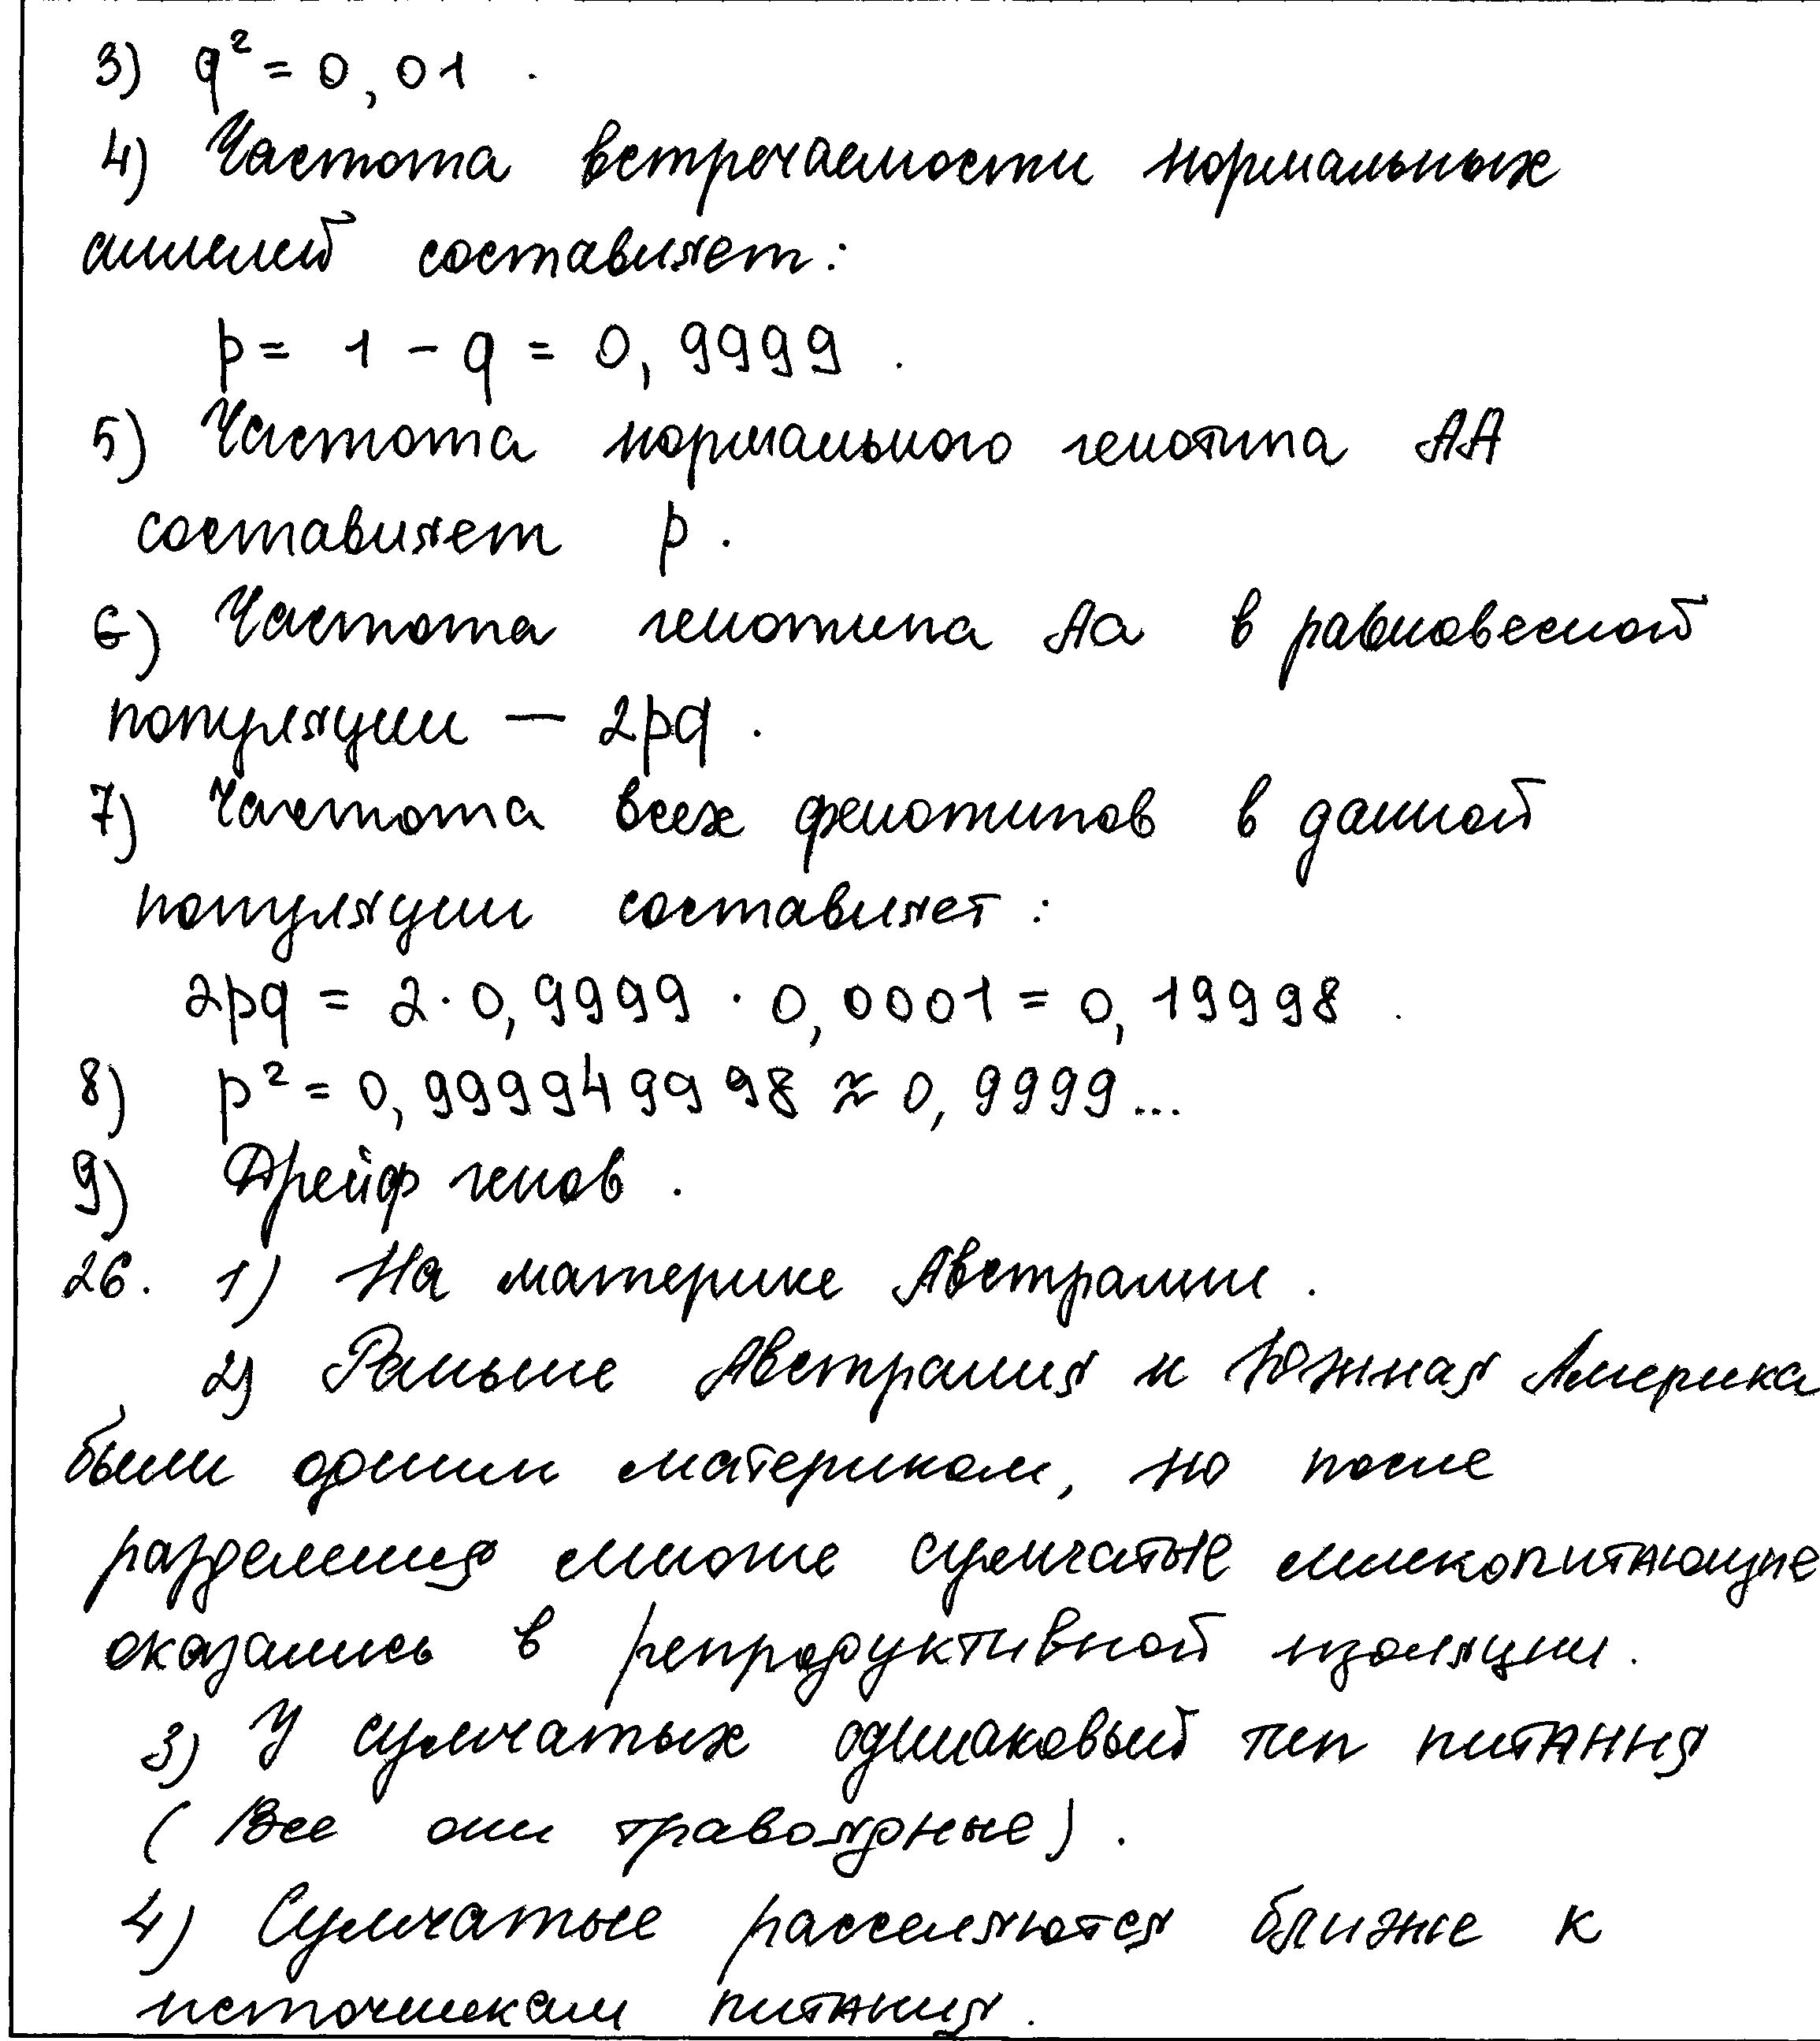 3) q² = 0,01 .
4) Частота встречаемости нормальных
аллелей составляет:
p = 1 - q = 0,9999 .
5) Частота нормального генотипа AA
составляет p .
6) Частота генотипа Aa в равновесной
популяции — 2pq .
7) Частота всех фенотипов в данной
популяции составляет :
2pq = 2 · 0,9999 · 0,0001 = 0,19998 .
8) p² = 0,9999499 98 ≈ 0,9999...
9) Дрейф генов .
26. 1) На материке Австралии .
2) Раньше Австралия и Южная Америка
были одним материком, но после
разделения многие сумчатые млекопитающие
оказались в репродуктивной изоляции .
3) У сумчатых одинаковый тип питания
( Все они травоядные) .
4) Сумчатые расселяются ближе к
источникам питания .